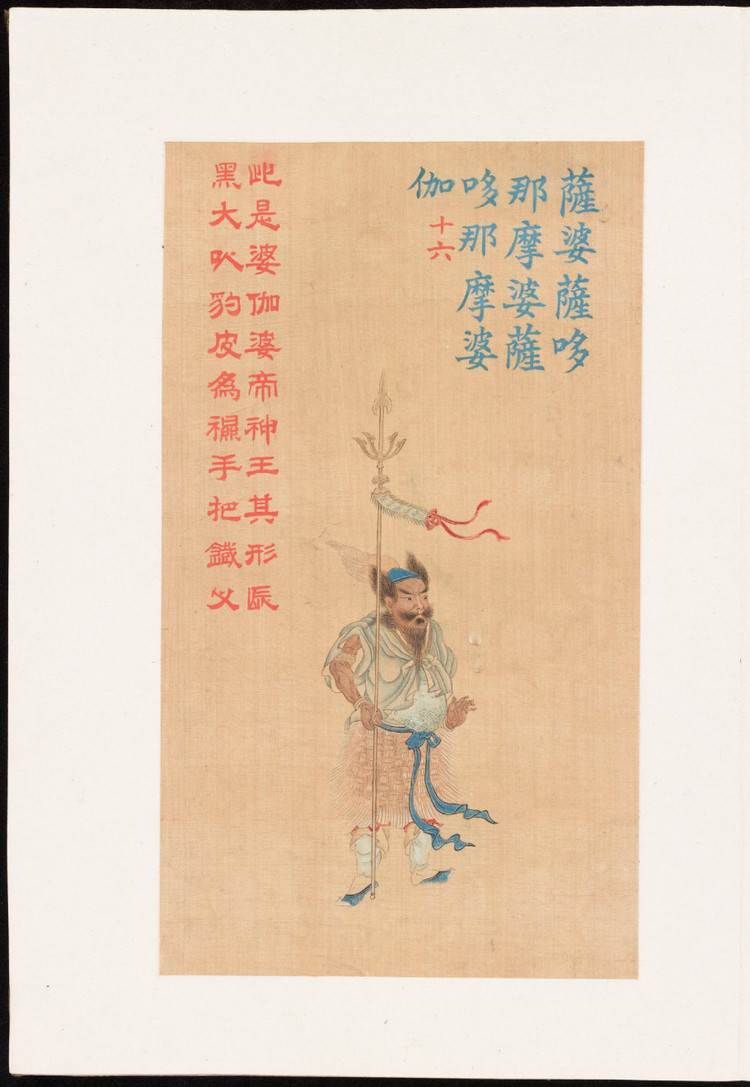 薩婆薩哆
那摩婆薩
哆那摩婆
伽十六
此是婆伽婆帝神王其形長
黑大以豹皮為裩手把鐵叉